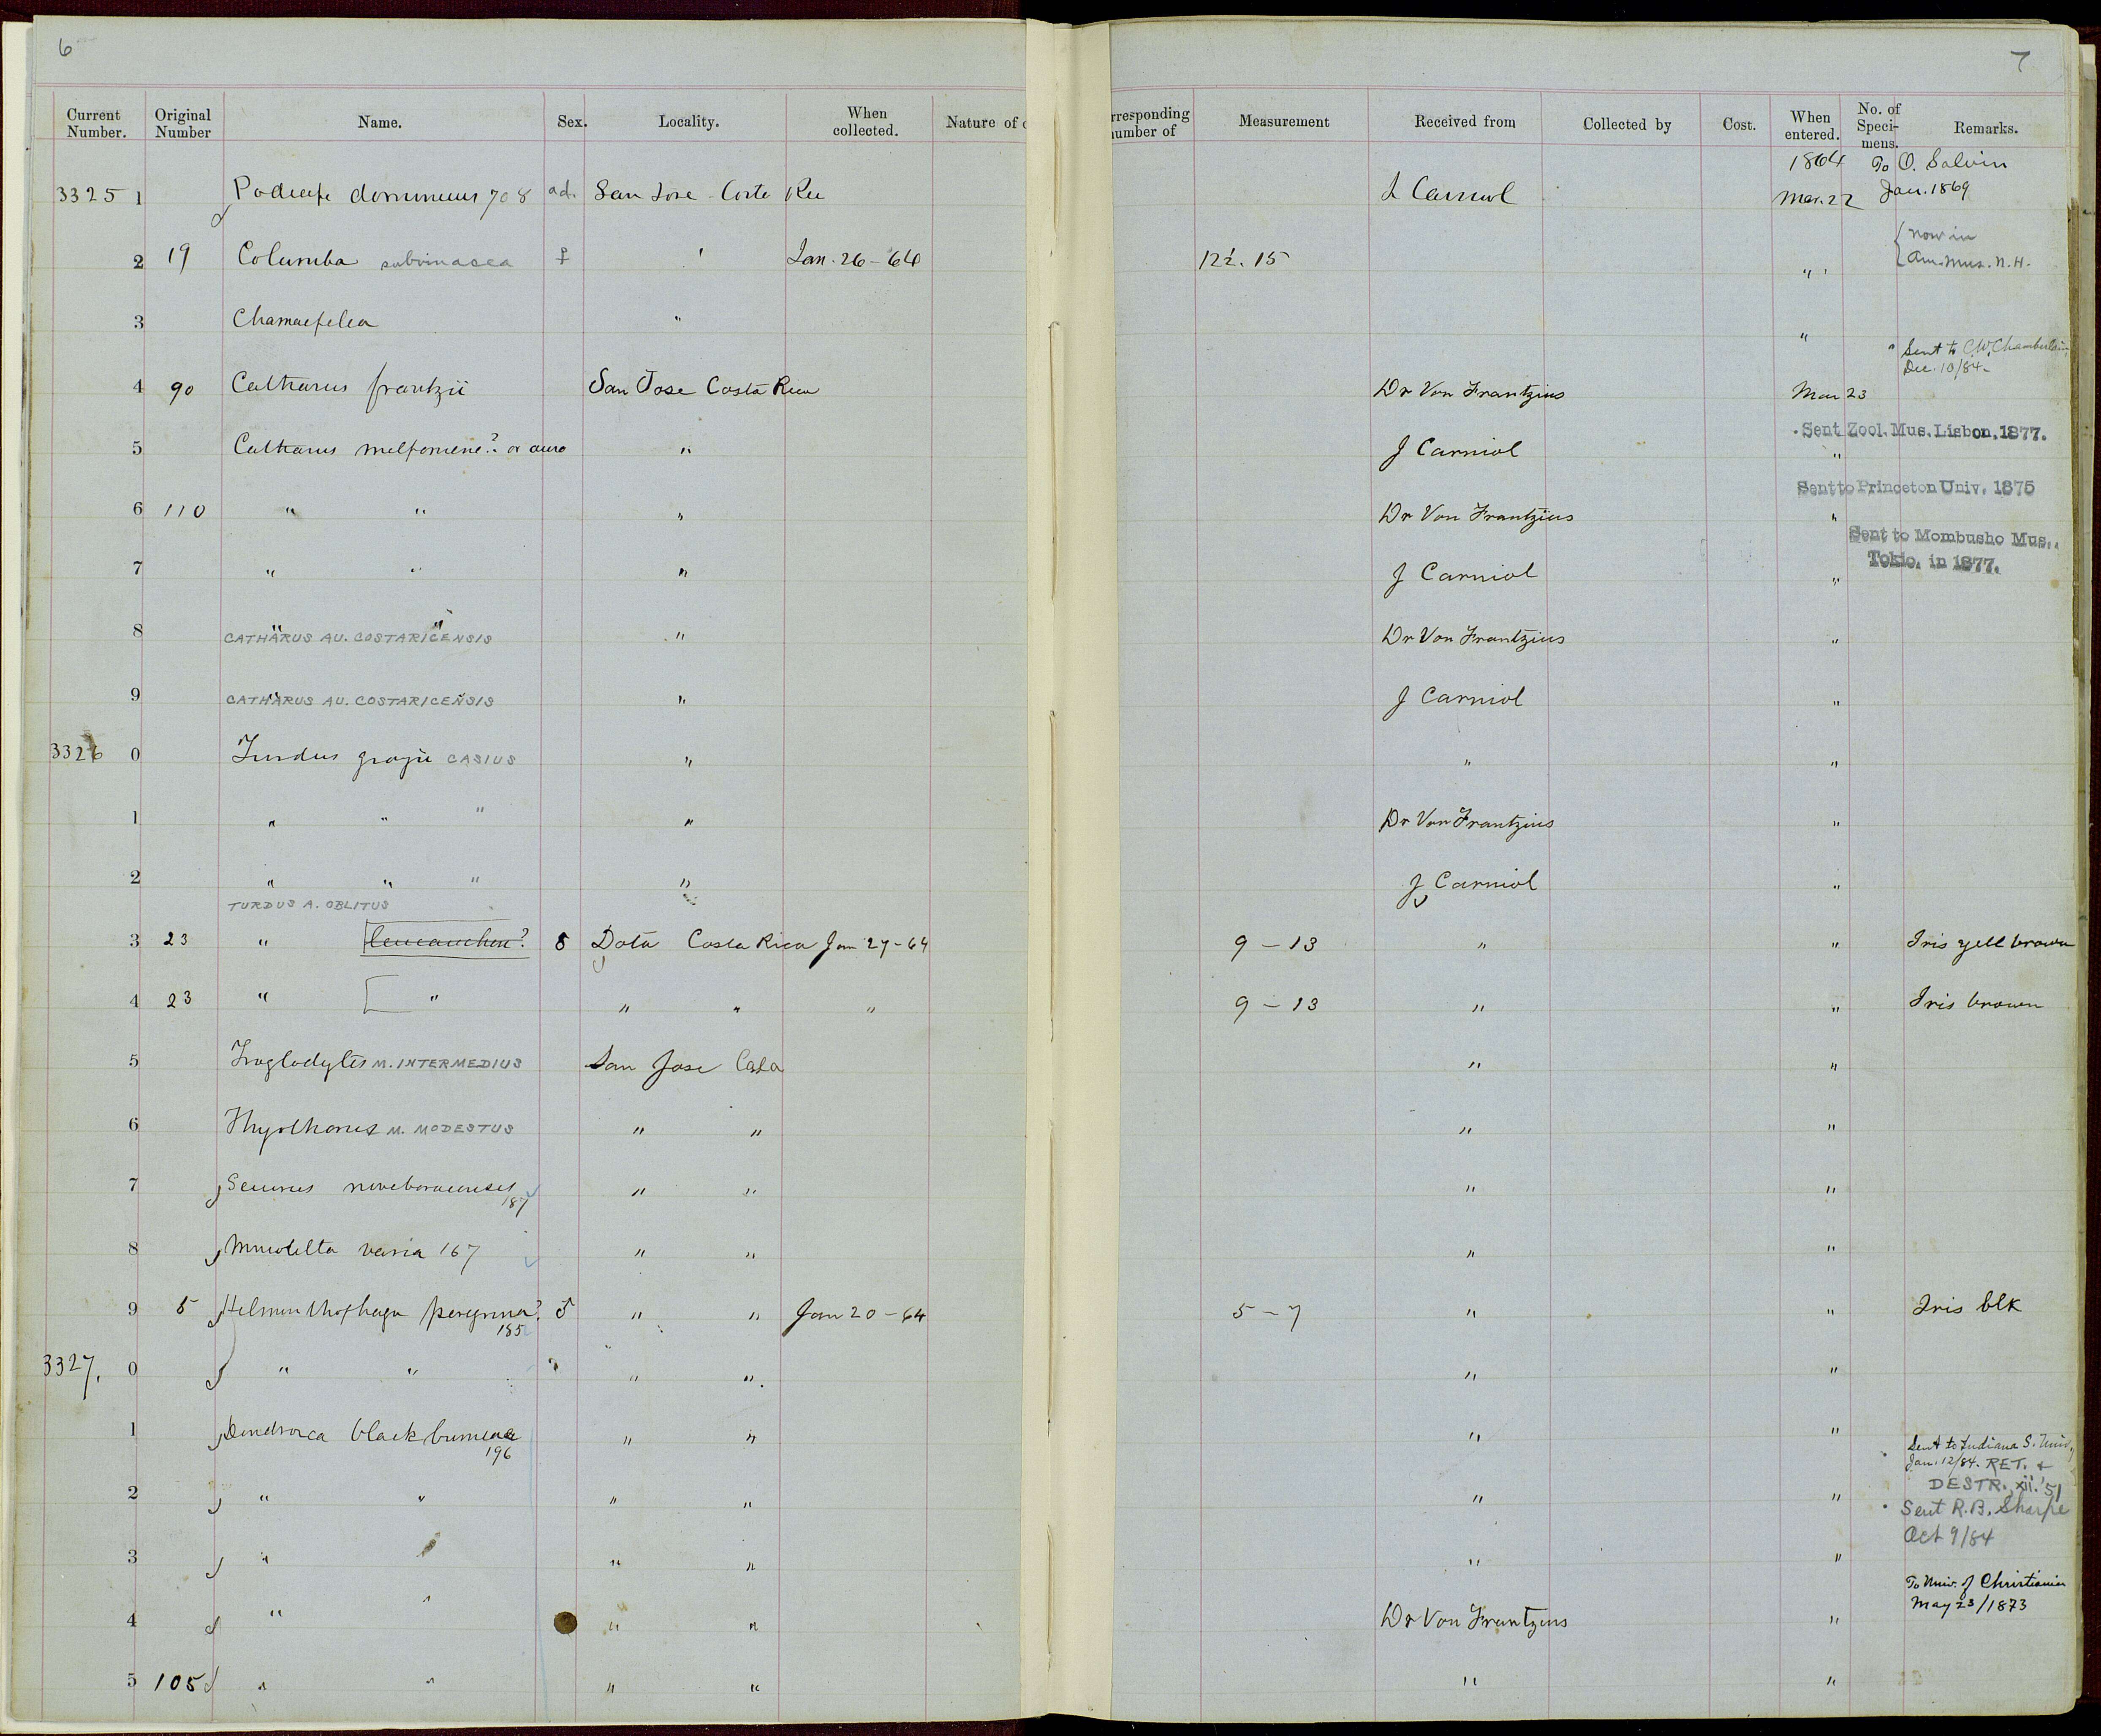 6
7
Current Number. Original Number Name. Sex. Locality. When collected. Nature of
rresponding umber of Measurement Received from Collected by Cost. When entered. No. of Speci-mens. Remarks.
1864 To O. Salvin
3325 1 dominicus 708 ad. San Jose Carniol Mar. 22 Jan. 1869
{ now in
2 19 Columba subvinacea ♀ ' Jan. 26 - 64 12½. 15 " ' Am. Mus. N. H.
3 Chamaepelea " "
" Sent to C.W. Chamberlain
Dec. 10/84
4 90 Catharus frantzii San Jose Costa Rica Dr Von Frantzius Mar 23
Sent Zool. Mus. Lisbon. 1877.
5 Catharus melpomene? or auro " J Carniol "
Sent to Princeton Univ. 1875
6 110 " " " Dr Von Frantzius "
Sent to Mombusho Mus.
Tokio. in 1877.
7 " " " J Carniol "
8 " " CATHARUS AU. COSTARICENSIS " Dr Von Frantzius "
9 " " CATHARUS AU. COSTARICENSIS " J Carniol "
3326 0 Turdus grayii CASIUS " " "
1 " " " " Dr Von Frantzius "
2 " " " " J Carniol "
TURDUS A. OBLITUS
3 23 " leucauchen? Dota Costa Rica Jan 27-64 9 - 13 " " Iris yell brown
4 23 " [ " " " " 9 - 13 " " Iris brown
5 Troglodytes M. INTERMEDIUS San Jose " "
6 Thryothorus M. MODESTUS " " " "
7 Seiurus noveboracensis 187 " " " "
8 Mniotilta varia 167 " " " "
9 5 Helminthophaga peregrina? 185 " " Jan 20 - 64 5 - 7 " " Iris blk
3327. 0 " " " " " "
1 Dendroica blackburniae 196 " " " "
Sent to Indiana S. Univ.
Jan. 12/84. RET. +
DESTR. xii. '51
2 " " " " " "
Sent R. B. Sharpe
Oct 9/84
3 " " " " " "
To Univ. of Christiania
May 23/1873
4 " " " " Dr Von Frantzius "
5 105 " " " " " "